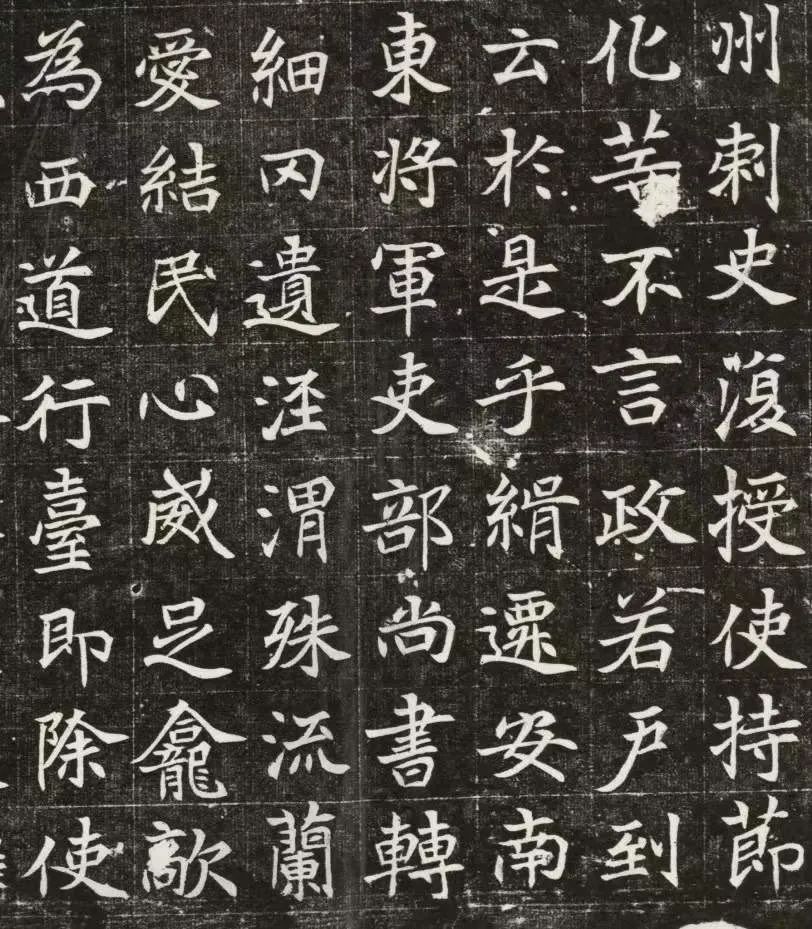 州刺史復授使持莭
化不言政若戶到
云於是乎緝遷安南
東將軍吏部尚書轉
細罔遺涇渭殊流蘭
愛結民心威足龕敵
為西道行臺即除使